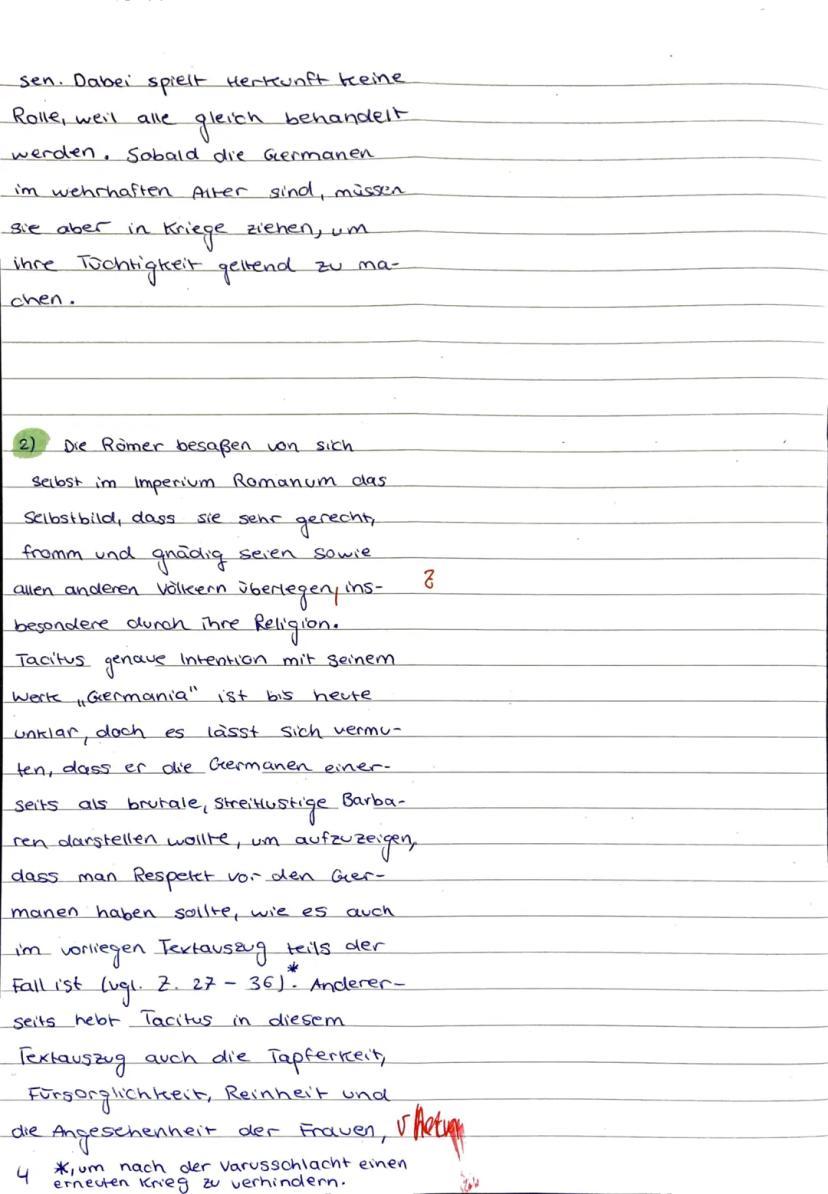 sen. Dabei spielt Herkunft keine
Rolle, weil alle gleich behandelt
werden. Sobald die Germanen
im wehrhaften Alter sind, müssen
sie aber in Kriege ziehen, um
ihre Tüchtigkeit geltend zu ma-
chen.
2) Die Römer besaßen von sich
selbst im Imperium Romanum das
Selbstbild, dass sie sehr gerecht,
fromm und gnädig seien sowie
allen anderen Völkern überlegen, ins-
Z
besondere durch ihre Religion.
Tacitus genaue Intention mit seinem
Werk „Germania“ ist bis heute
unklar, doch es lässt sich vermu-
ten, dass er die Germanen einer-
seits als brutale, streitlustige Barba-
ren darstellen wollte, um aufzuzeigen,
dass man Respekt vor den Ger-
manen haben sollte, wie es auch
im vorliegen Textauszug teils der
Fall ist (vgl. Z. 27 - 36).* Anderer-
seits hebt Tacitus in diesem
Textauszug auch die Tapferkeit,
Fürsorglichkeit, Reinheit und
die Angesehenheit der Frauen,
4 *, um nach der Varusschlacht einen
erneuten Krieg zu verhindern.